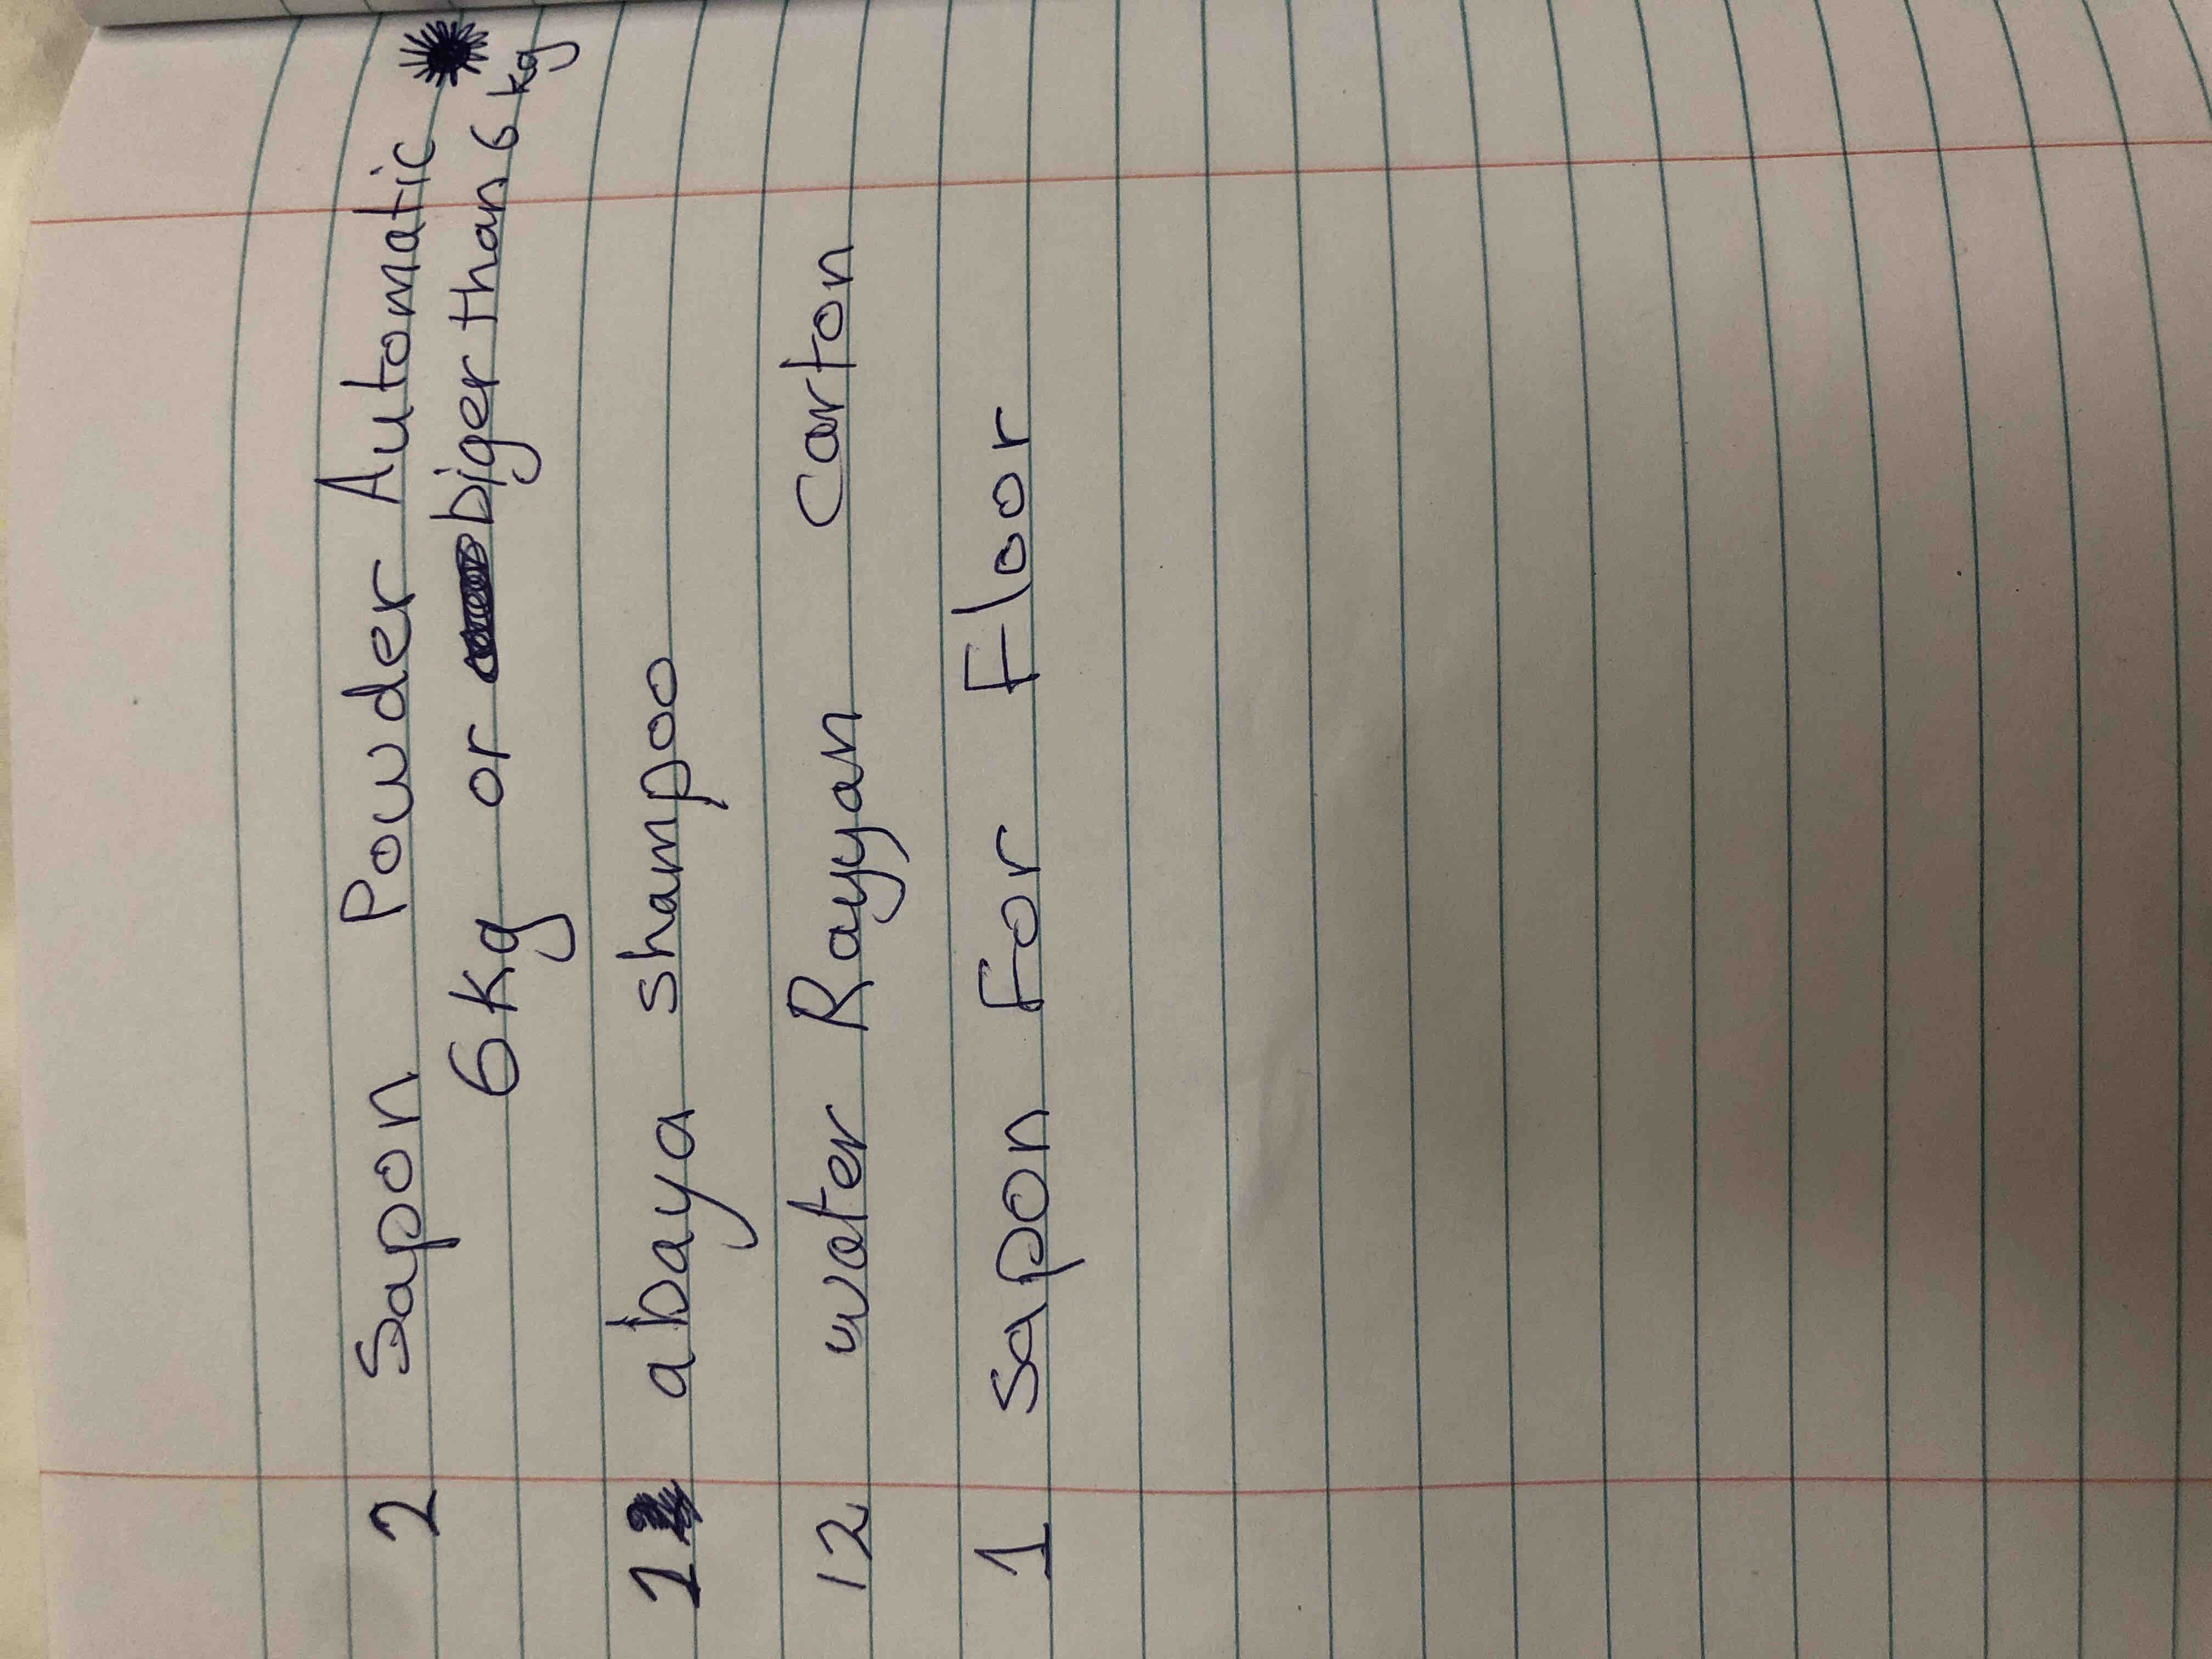 2 Sapon Powder Automatic
6Kg or biger than 6 kg
1 abaya shampoo
12 water Rayyan Carton
1 Sapon For Floor